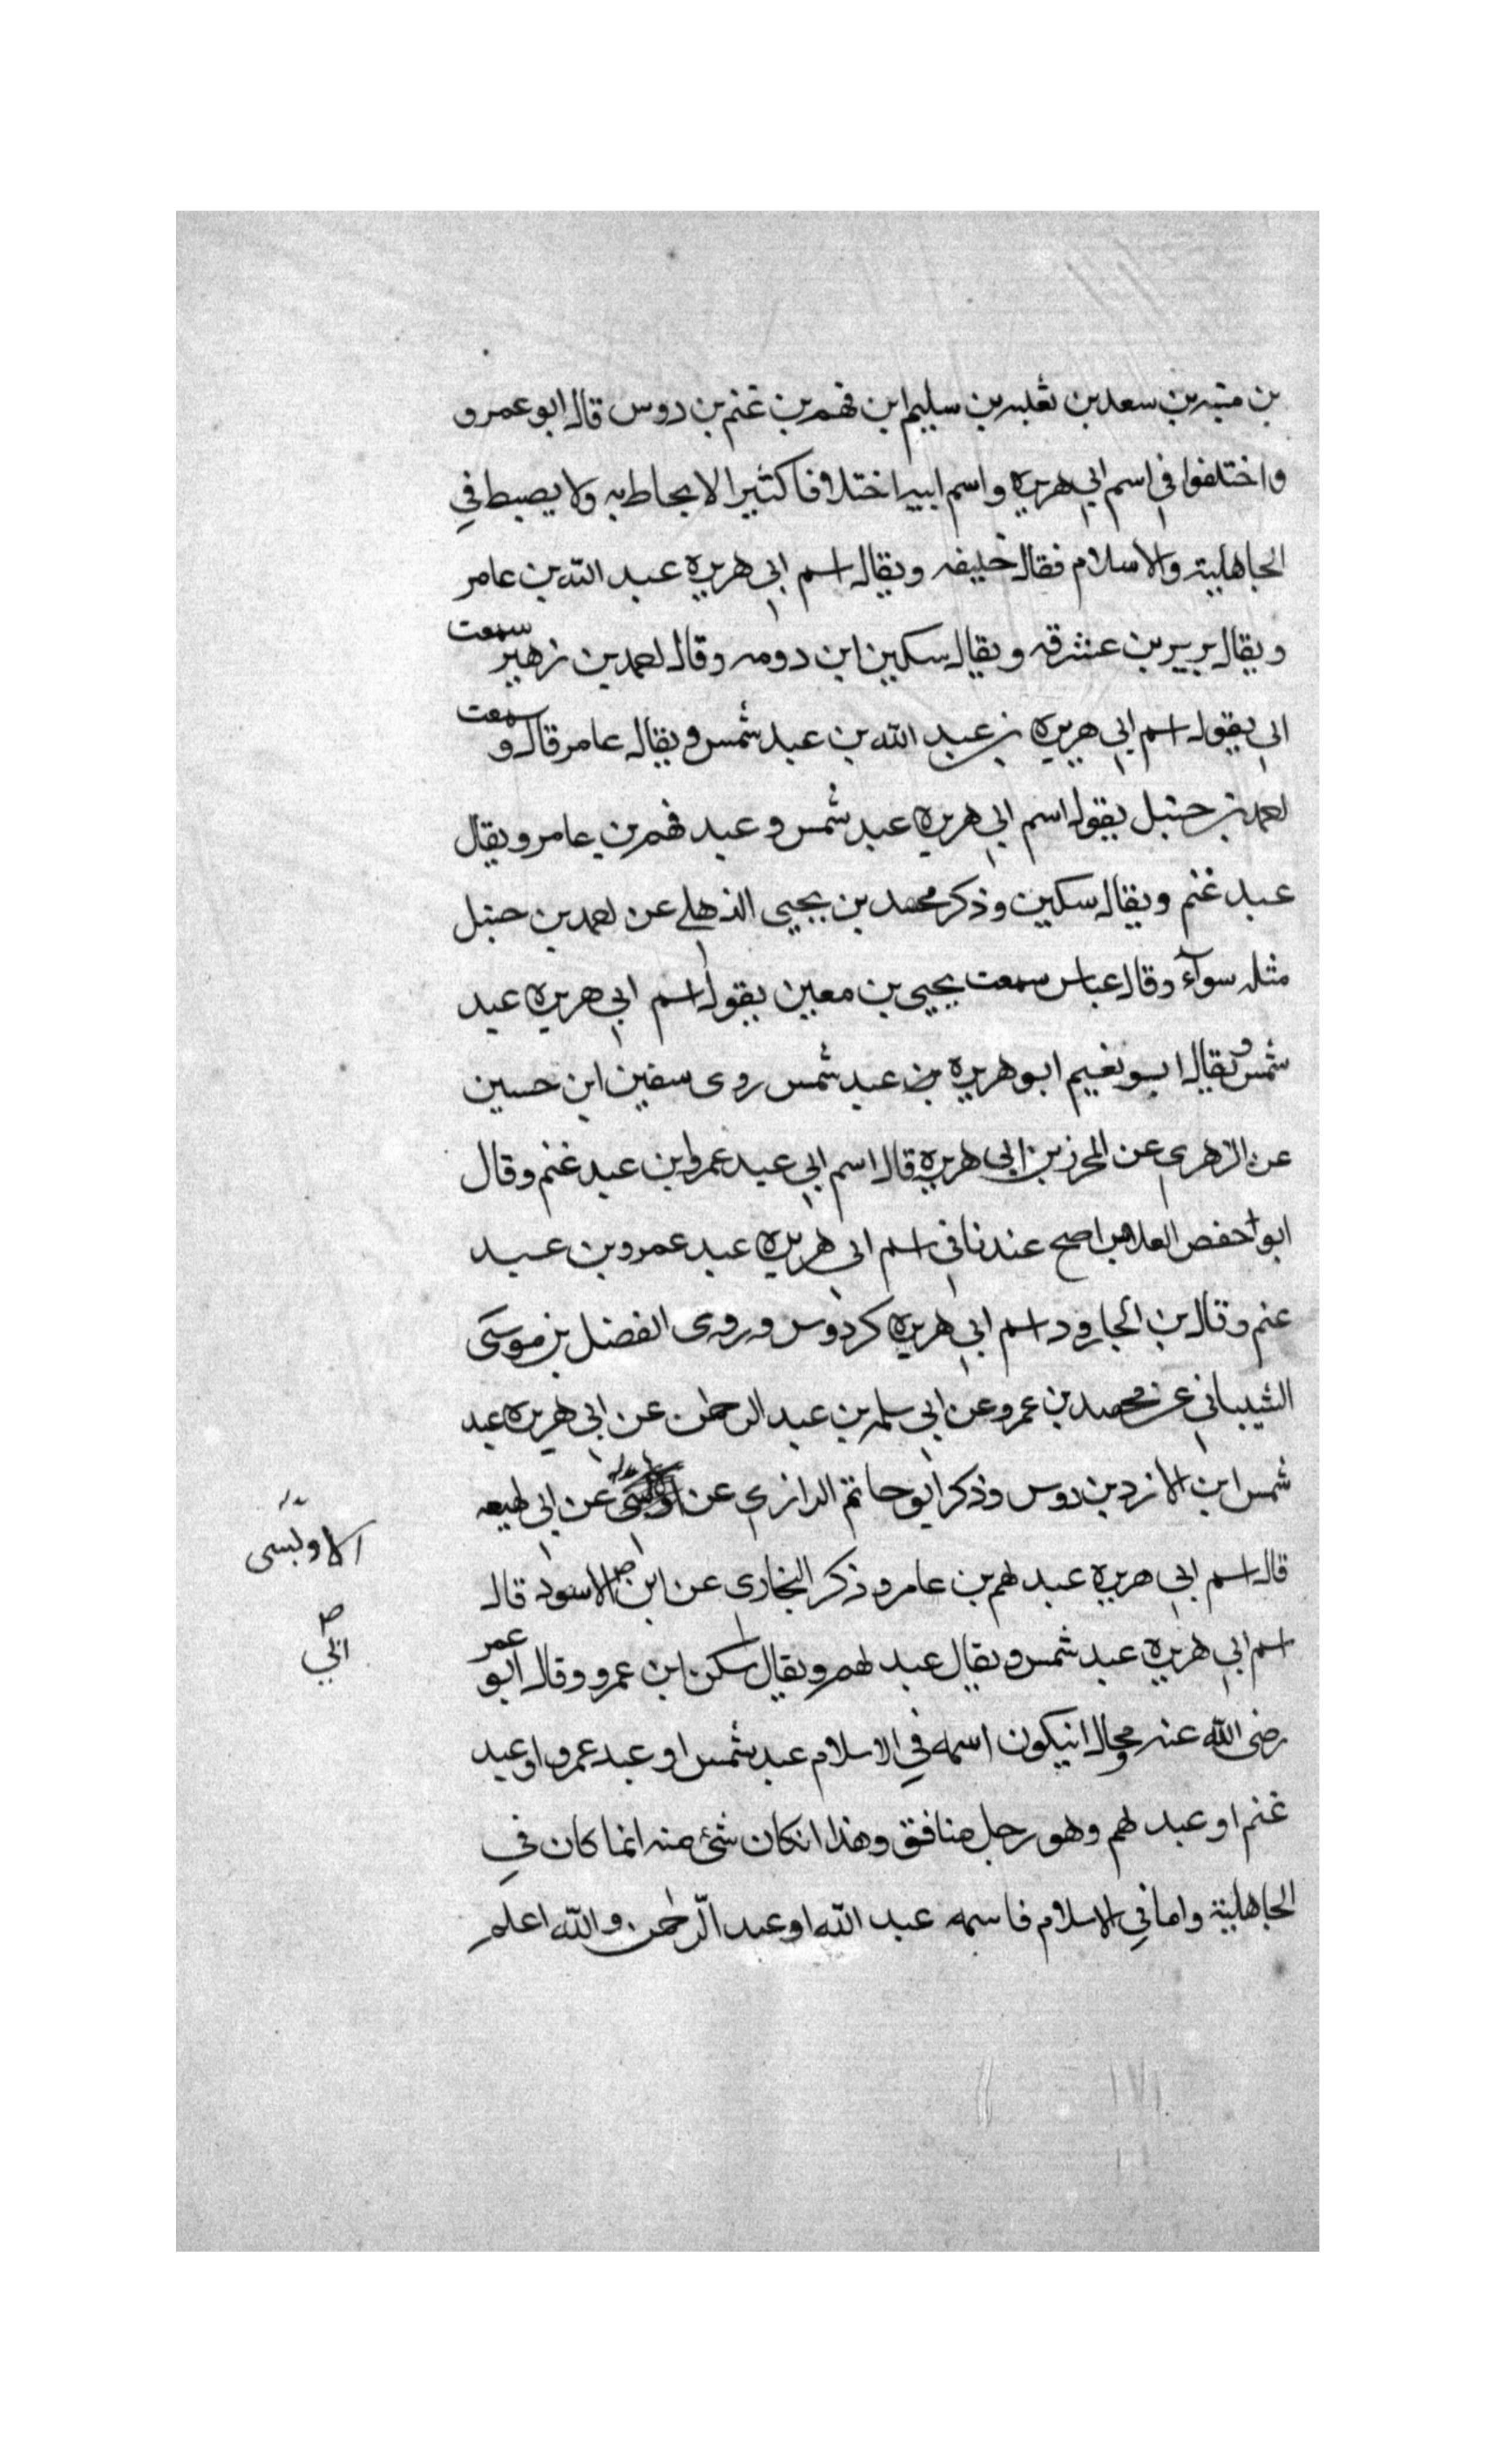 بن منبه بن سعد بن ثعلبه بن سليم ابن فهم بن غنم بن دوس قال ابو عمرو
واختلفوا في اسم ابي هريره واسم ابيه اختلافا كثيرا لا يحاط به ولا يضبط في
الجاهلية والاسلام فقال خليفه ويقال اسم ابي هريره عبد الله بن عامر
ويقال برير بن عشرقه ويقال سكين ابن دومه وقال احمد بن زهير سمعت
ابي يقول اسم ابي هريره بن عبد الله بن عبد شمس ويقال عامر قال و سمعت
احمد بن حنبل يقول اسم ابي هريره عبد شمس وعبد فهم بن عامر ويقال
عبد غنم ويقال سكين وذكر محمد بن يحيي الذهلي عن احمد بن حنبل
مثله سوآء وقال عباس سمعت يحيي بن معين يقول اسم ابي هريره عبد
شمس ويقال ابو نعيم ابو هريره بن عبد شمس روى سفين ابن حسين
عن الزهري عن المحرز بن ابي هريره قال اسم ابي عبد عمرو ابن عبد غنم وقال
ابو حفص الفلاس اصح عندنا في اسم ابي هريره عبد عمرو بن عبد
غنم وقال بن الجارود اسم ابي هريره كردوس وروى الفضل بن موسى
الشيباني عن محمد بن عمرو عن ابي سلمه بن عبد الرحمن عن ابي هريره عبد
شمس ابن الازد بن دوس وذكر ابو حاتم الرازي عن عن ابي لهيعه
الاويسى
قال اسم ابي هريره عبد لهم بن عامر وذكر البخارى عن ابن الاسود قال
ابي
اسم ابي هريره عبد شمس ويقال عبد لهم ويقال سكن ابن عمرو وقال ابو عمر
رضى الله عنه ومحال انيكون اسمه في الاسلام عبد شمس او عبد عمرو او عبد
غنم او عبد لهم وهو رجل منافق وهذا انكان شئ منه انما كان في
الجاهلية واما في الاسلام فاسمه عبد الله او عبد الرحمن والله اعلم